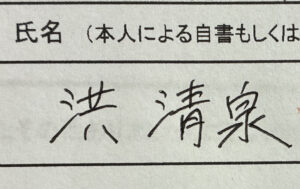 氏名 （本人による自書もしくは
洪 清泉